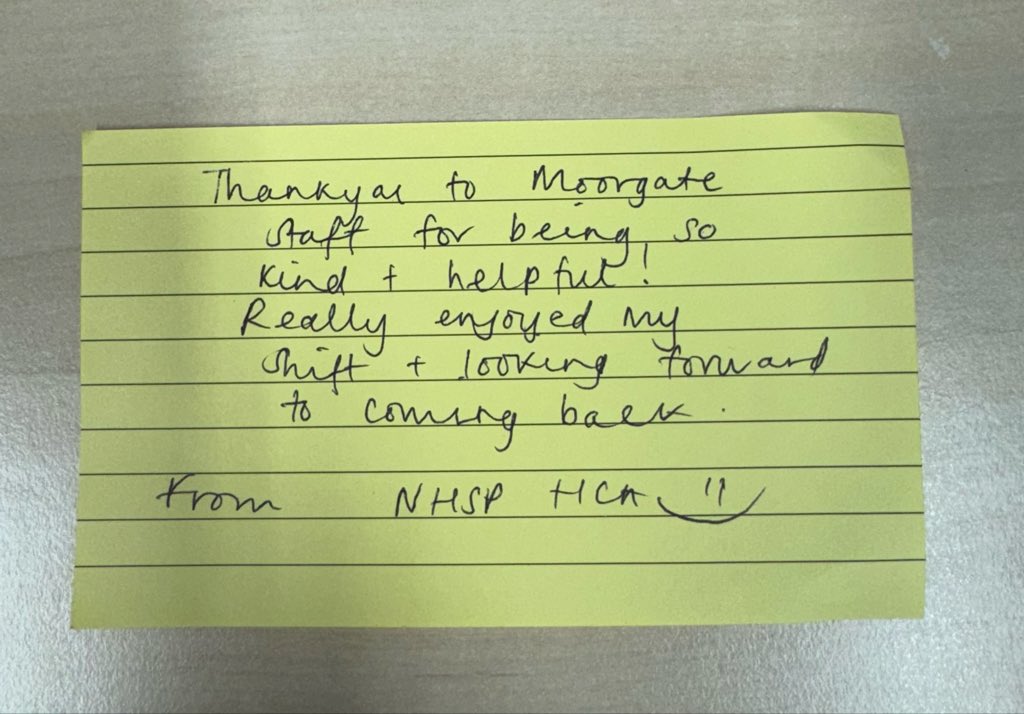 Thankyou to Moorgate
staff for being so
kind + helpful!
Really enjoyed my
shift + looking forward
to coming back.
From NHSP HCA